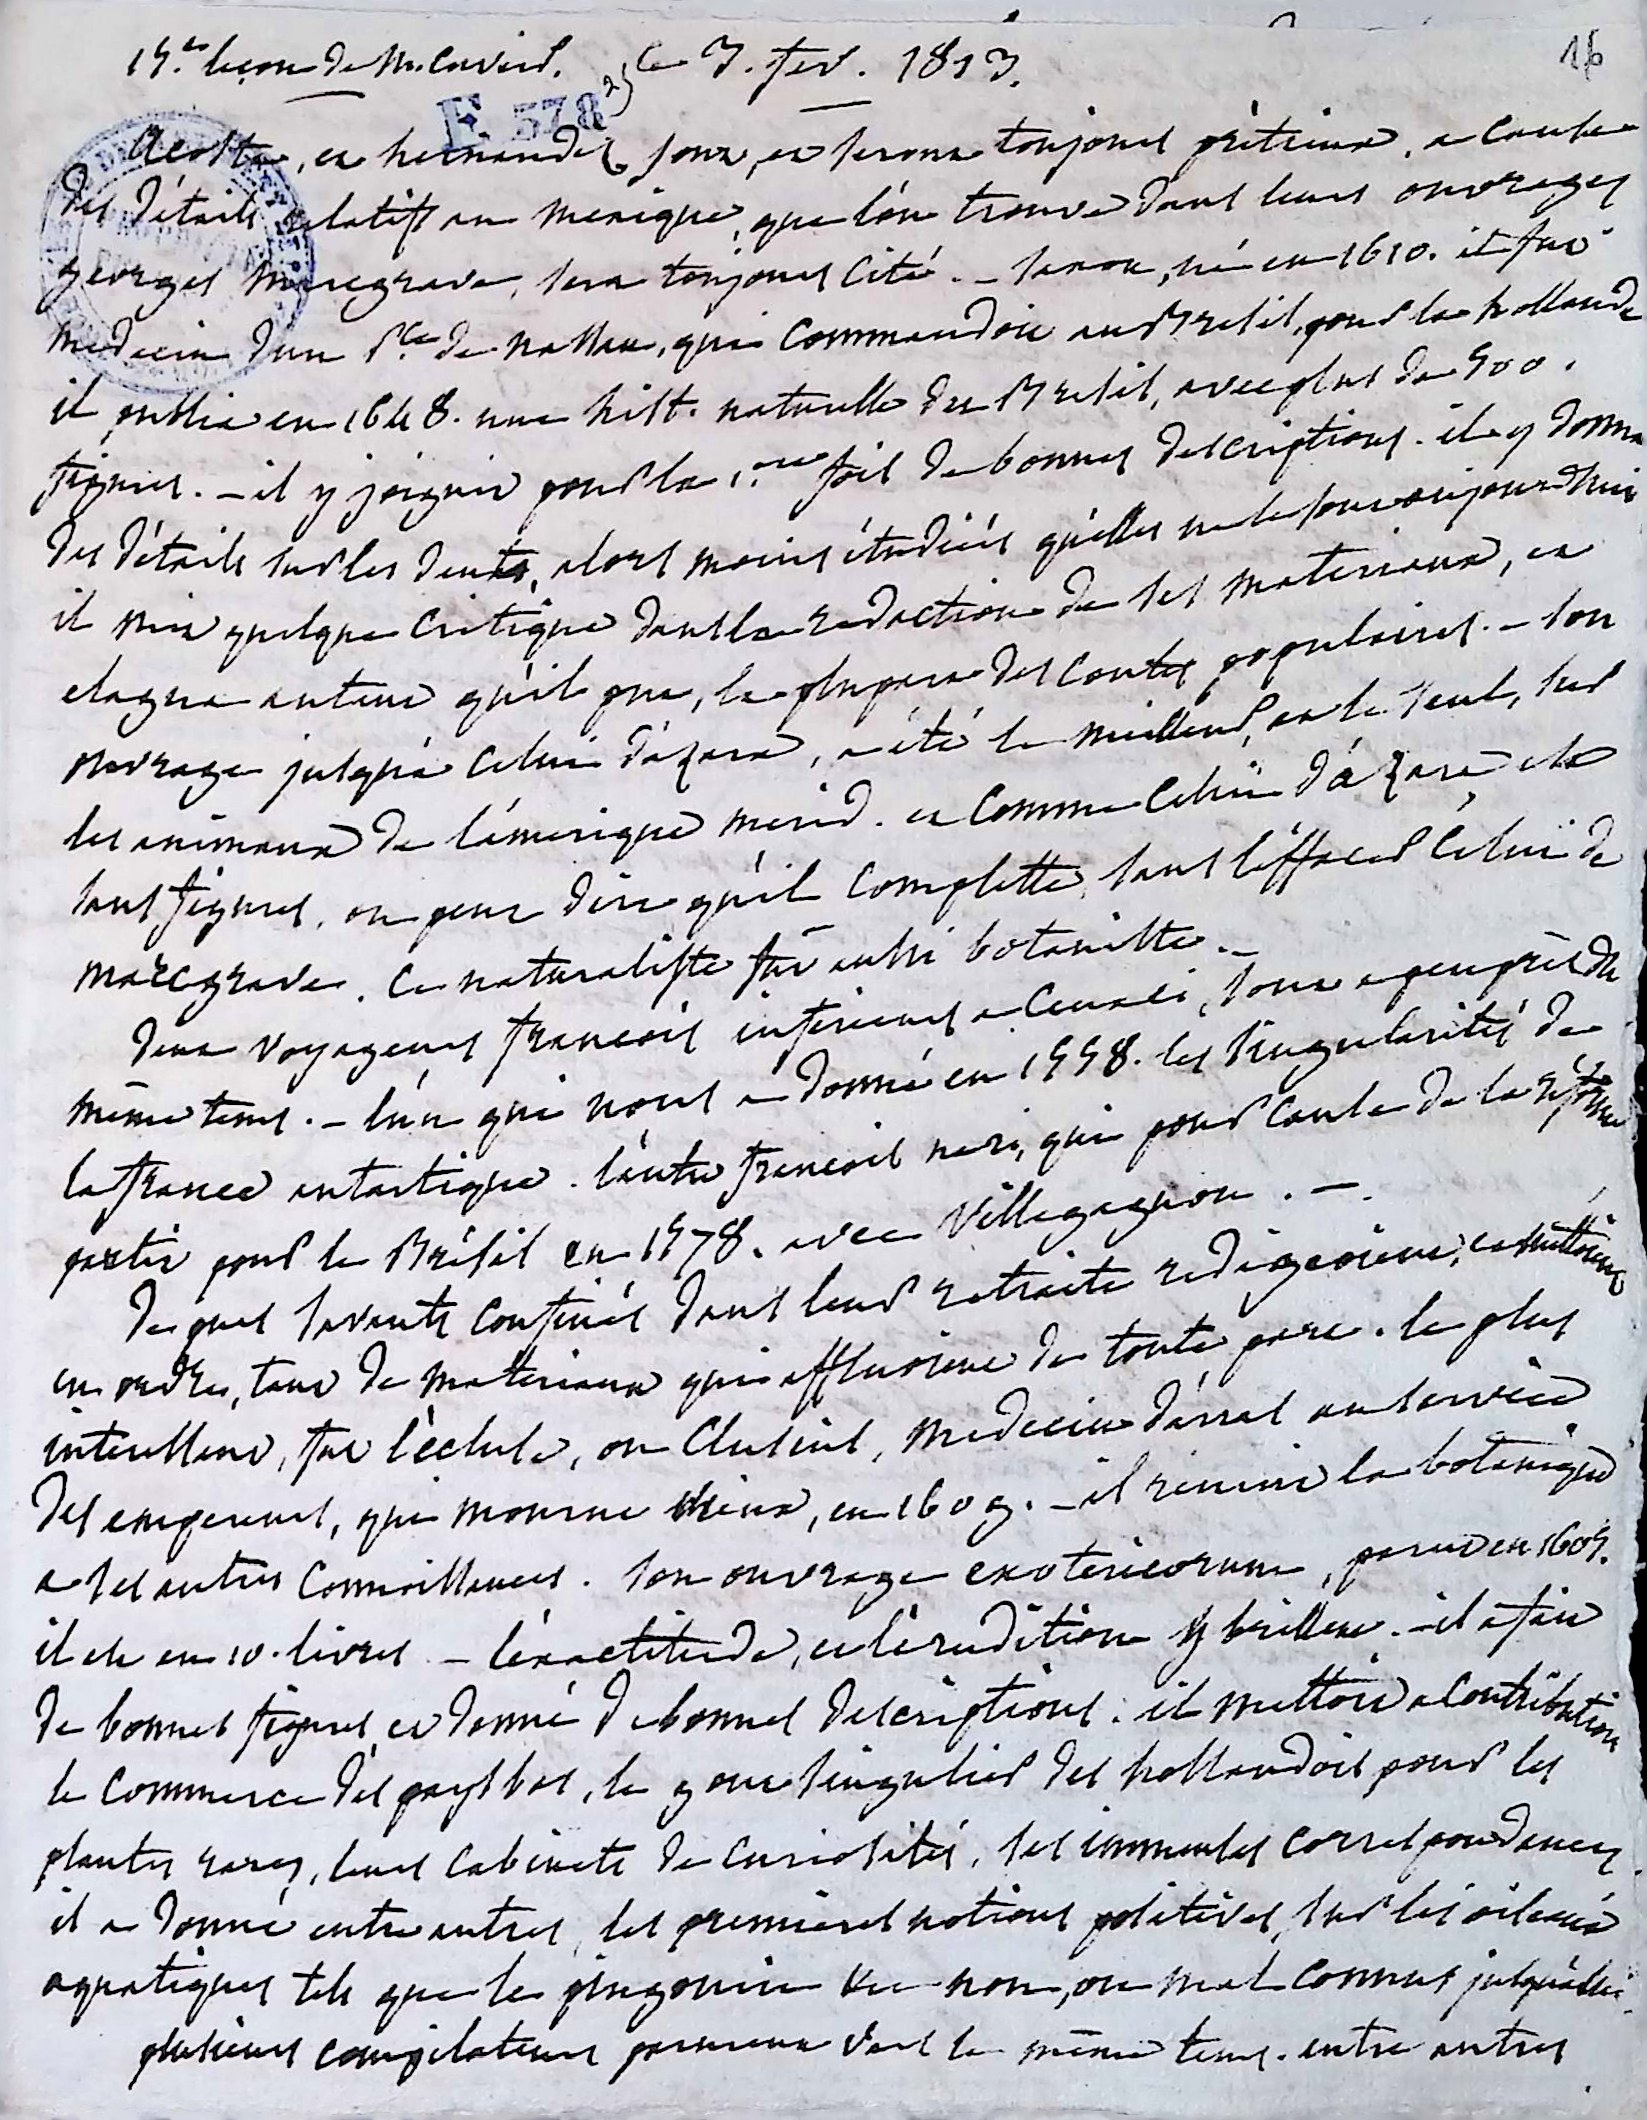 15.e leçon de M. Cuvier. ce 3. fev. 1813.
16
E 578 2)
Acosta, et hernandes sont, et seront toujours prétieux, a cause
des détails relatifs au mexique, que l'on trouve dans leurs ouvrages
georges Marcgrave, sera toujours cité. - saxon, né en 1610. il fut
medecin d'un P.ce de Nassau, qui commandoit au Bresil, pour la hollande
il publia en 1648. une hist. naturelle du Bresil, avec plus de 500.
figures. - il y joignit pour la 1.ere fois de bonnes descriptions. il y donna
des détails sur les dents, alors moins étudiées qu'elles ne le sont aujourd'hui
il mit quelque critique dans la redaction de ses materiaux, et
elagua autant qu'il put, la plupart des contes populaires. - son
ouvrage jusqu'a celui d'azara, a été le meilleur, et le seul, sur
les animaux de l'amerique merid. et comme celui d'azara, est
sans figures, on peut dire qu'il complette, sans l'effacer celui de
marcgrave. ce naturaliste fut aussi botaniste. -
deux voyageurs françois inferieurs a ceux ci, sont a peu près du
même tems. - l'un qui nous a donné en 1558. les singularités de
la france antartique. l'autre françois neri, qui pour cause de la réforme
partit pour le Brésil en 1578. avec Villegagnon. -
de quels savants confinés dans leur retraite redigeoient, et mettoient
en ordre, tant de materiaux qui affluoient de toute part. le plus
interessant, fut l'écluse, ou Clusius, medecin d'arras au service
des empereurs, qui mourut vieux, en 1609. - il reunit la botanique
a ses autres connoissances. son ouvrage exotericorum, parut en 1605.
il est en 10. livres - l'exactitude, et l'érudition y brillent. - il a fait
de bonnes figures, et donné de bonnes descriptions. il mettoit a contribution
le commerce des pays bas, le gout singulier des hollandois pour les
plantes rares, leurs cabinets de curiosités, ses immenses correspondances
il a donné entre autres, les premieres notions positives, sur les oiseaux
aquatiques tels que le pingouin &c non, ou mal connus jusqu'a lui.
plusieurs compilateurs parurent vers le même tems. entre autres